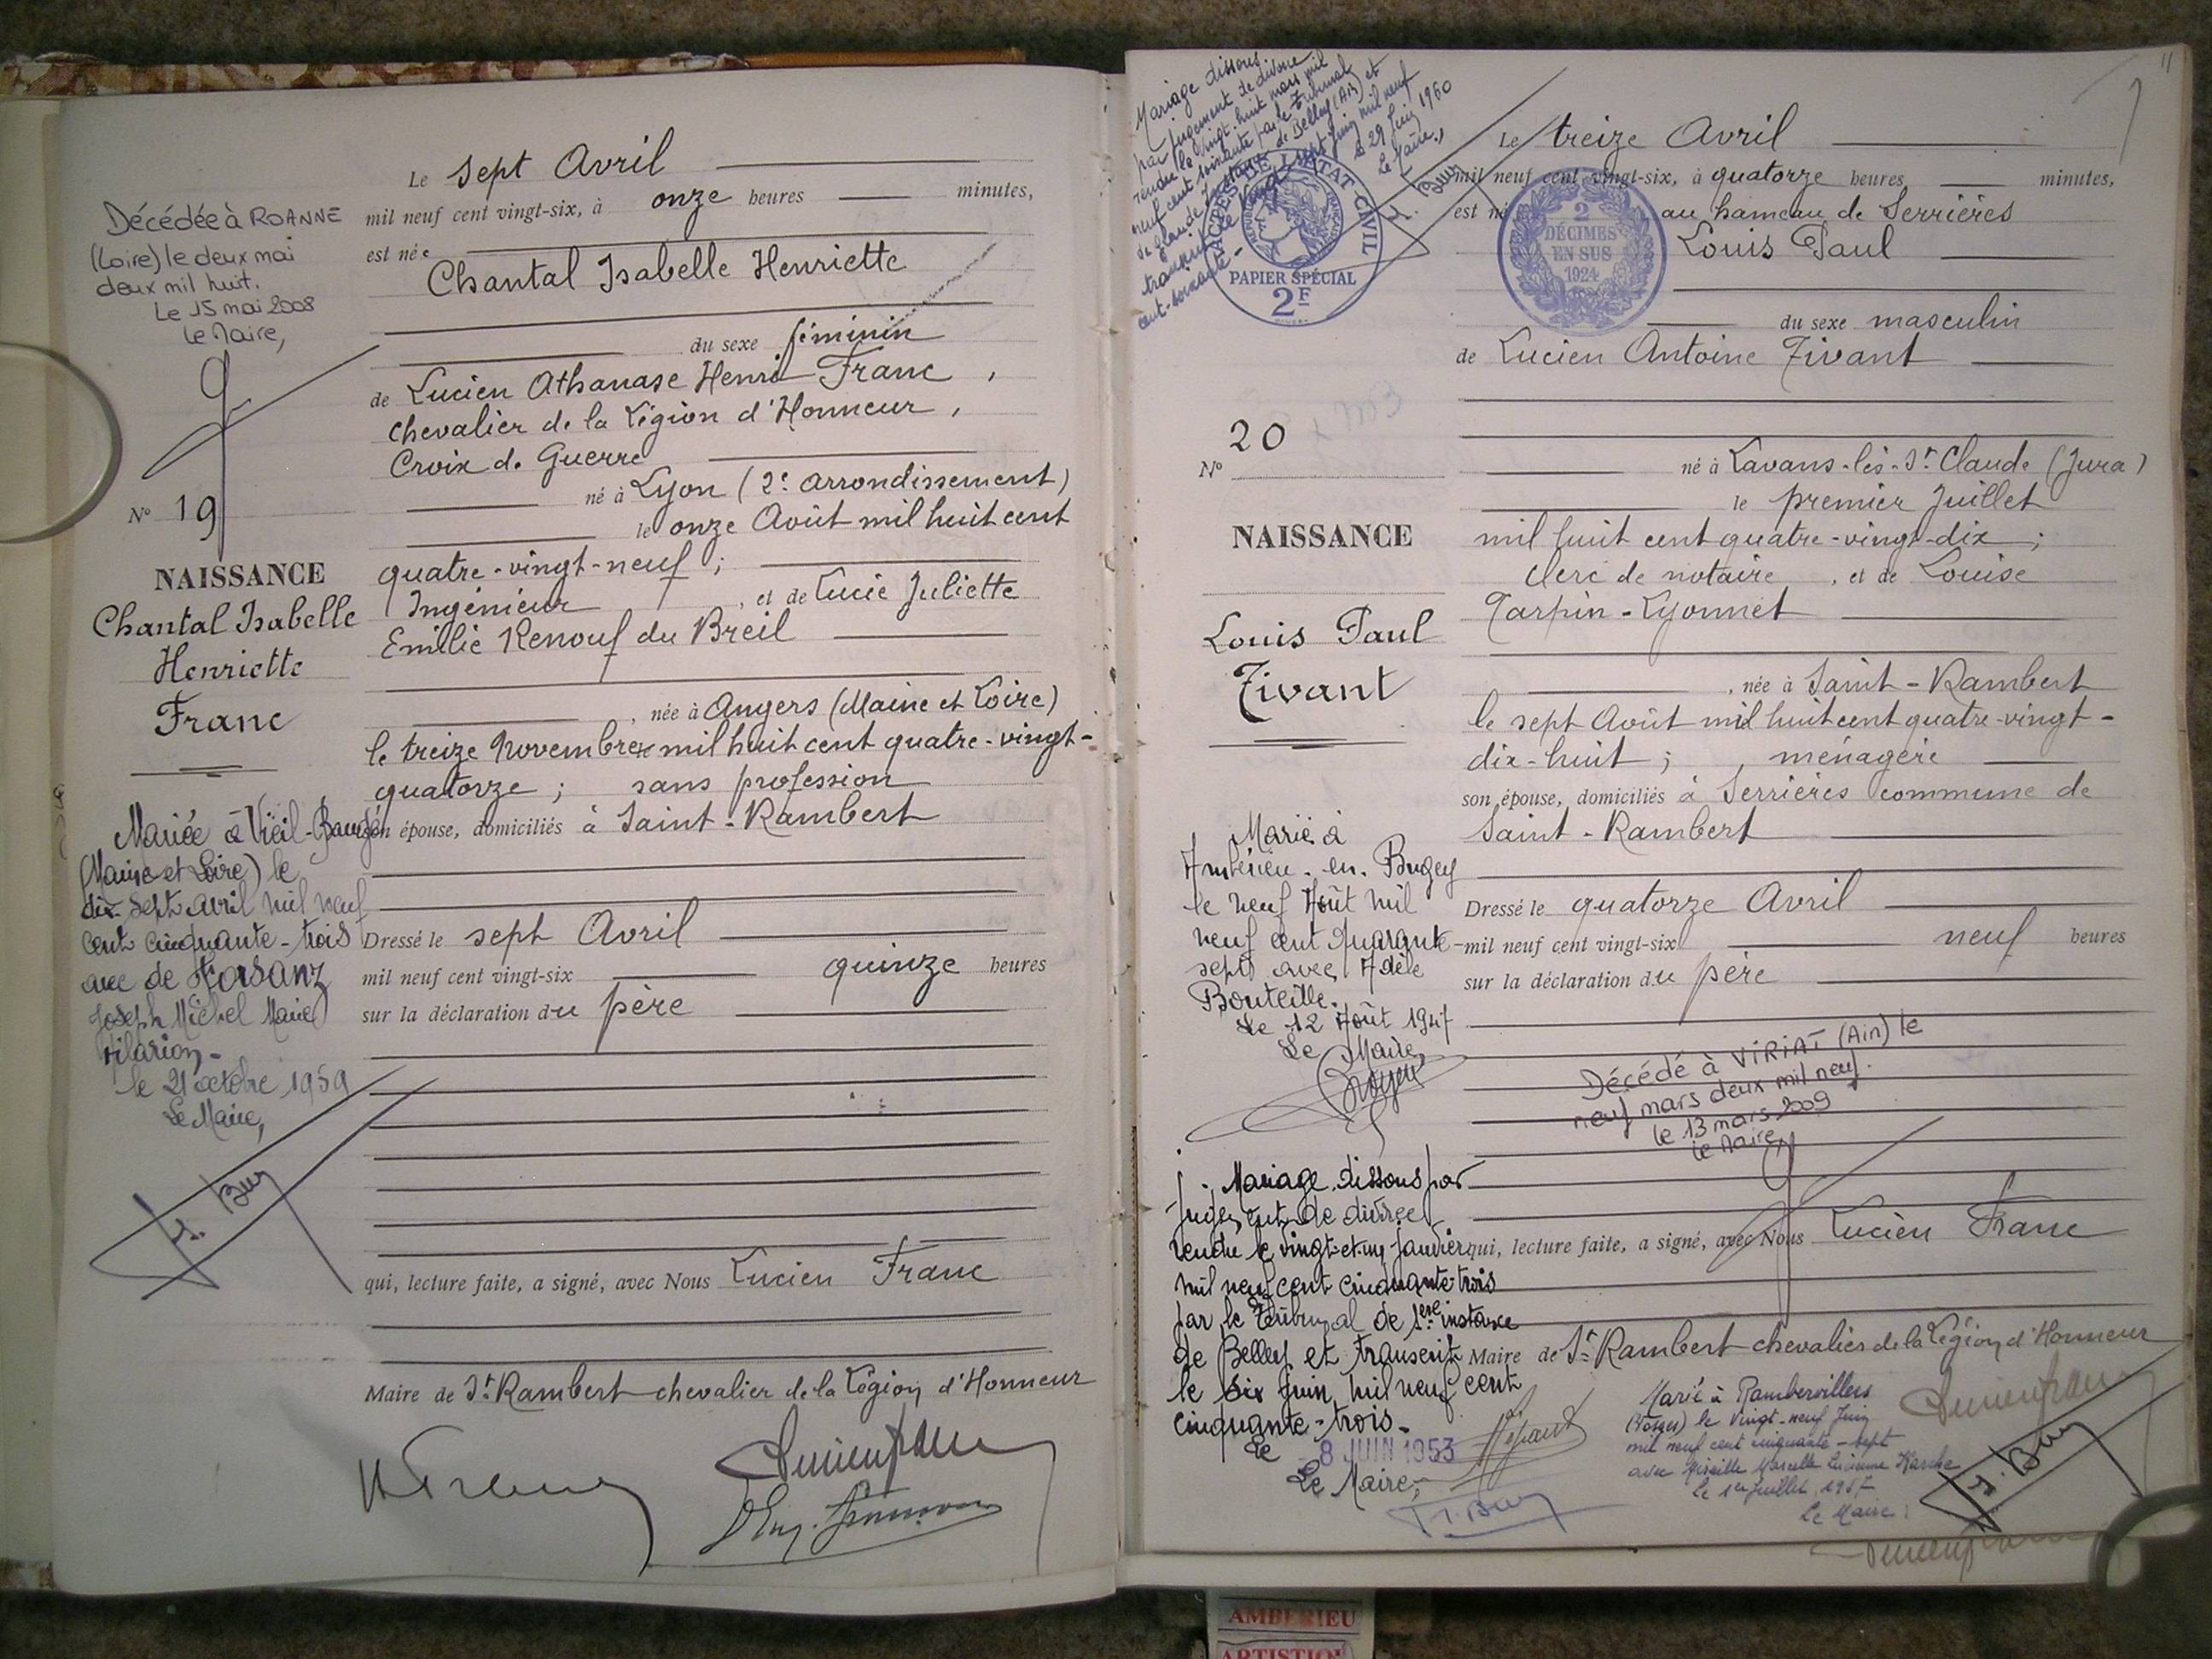 Le sept Avril
mil neuf cent vingt-six, à onze heures minutes,
est née
Chantal Isabelle Henriette
du sexe féminin
de Lucien Athanase Henri Franc,
chevalier de la Légion d'Honneur,
Croix de Guerre
né à Lyon (2e arrondissement)
le onze Août mil huit cent
quatre-vingt-neuf;
Ingénieur, et de Lucie Juliette
Emilie Renouf du Breil
, née à Angers (Maine et Loire)
le treize Novembre mil huit cent quatre-vingt-
quatorze; sans profession
son épouse, domiciliés à Saint-Rambert
Dressé le sept Avril
mil neuf cent vingt-six quinze heures
sur la déclaration du père
qui, lecture faite, a signé, avec Nous Lucien Franc
Maire de St Rambert chevalier de la Légion d'Honneur
Décédée à ROANNE
(Loire) le deux mai
deux mil huit.
Le 15 mai 2008
Le Maire,
No 19
NAISSANCE
Chantal Isabelle
Henriette
Franc
Mariée à Vieil-Baugé
(Maine et Loire) le
dix-sept avril mil neuf
cent cinquante-trois
avec de
Joseph Michel Marie
Hilarion-
le 21 octobre 1959
Le Maire,
11
Mariage dissous
par jugement de divorce
rendu le vingt-huit mars mil
neuf cent soixante par le Tribunal
de grande Instance de Belley (Ain) et
transcrit le vingt sept Juin mil neuf
cent-soixante-
Le 29 Juin 1960
Le Maire,
PAPIER SPÉCIAL
2F
2
DÉCIMES
EN SUS
1924
Le treize Avril
mil neuf cent vingt-six, à quatorze heures minutes,
est né au hameau de Serrières
Louis Paul
du sexe masculin
de Lucien Antoine Tivant
né à Lavans-lès-St Claude (Jura)
le premier Juillet
mil huit cent quatre-vingt-dix;
clerc de notaire, et de Louise
Tarpin-Lyonnet
, née à Saint-Rambert
le sept Août mil huit cent quatre-vingt-
dix-huit; ménagère
son épouse, domiciliés à Serrières commune de
Saint-Rambert
Dressé le quatorze Avril
mil neuf cent vingt-six neuf heures
sur la déclaration du père
Décédé à VIRIAT (Ain) le
neuf mars deux mil neuf.
le 13 mars 2009
Le Maire,
qui, lecture faite, a signé, avec Nous Lucien Franc
Maire de St Rambert chevalier de la Légion d'Honneur
No 20
NAISSANCE
Louis Paul
Tivant
Marié à
Ambérieu-en-Bugey
le neuf Août mil
neuf cent quarante-
sept avec Adèle
Bouteille.
Le 12 Août 1947
Le Maire,
Mariage dissous par
jugement de divorce
rendu le vingt-et-un janvier
mil neuf cent cinquante-trois
par le Tribunal de 1ère instance
de Belley et transcrit
le six juin mil neuf cent
cinquante-trois-
Le 8 JUIN 1953
Le Maire,
Marié à Rambervillers
(Vosges) le vingt-neuf Juin
mil neuf cent cinquante-sept
avec Mireille Marcelle Lucienne
Le 1er Juillet 1957
Le Maire:
AMBERIEU